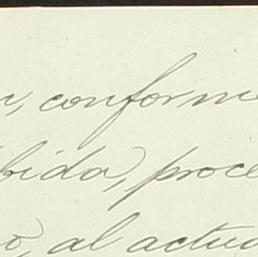 , conforme
bida, proce
o, al actua